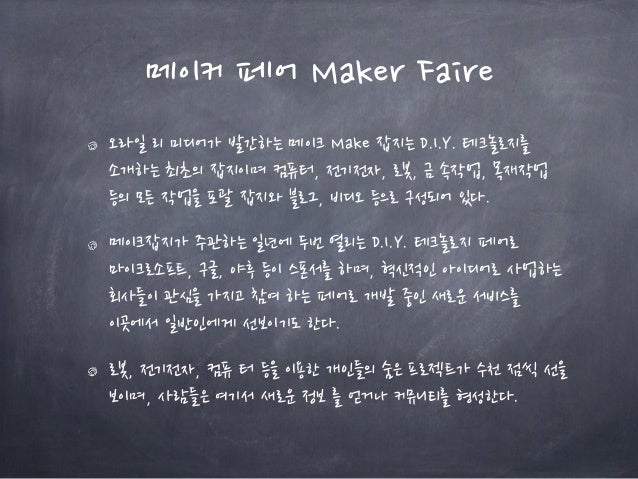 메이커 페어 Maker Faire
오라일 리 미디어가 발간하는 메이크 Make 잡지는 D.I.Y. 테크놀로지를
소개하는 최초의 잡지이며 컴퓨터, 전기전자, 로봇, 금 속작업, 목재작업
등의 모든 작업을 포괄 잡지와 블로그, 비디오 등으로 구성되어 있다.
메이크잡지가 주관하는 일년에 두번 열리는 D.I.Y. 테크놀로지 페어로
마이크로소프트, 구글, 야후 등이 스폰서를 하며, 혁신적인 아이디어로 사업하는
회사들이 관심을 가지고 참여 하는 페어로 개발 중인 새로운 서비스를
이곳에서 일반인에게 선보이기도 한다.
로봇, 전기전자, 컴퓨 터 등을 이용한 개인들의 숨은 프로젝트가 수천 점씩 선을
보이며, 사람들은 여기서 새로운 정보 를 얻거나 커뮤니티를 형성한다.